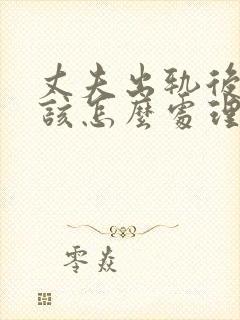 丈夫出轨後
該怎麽處理
零焱